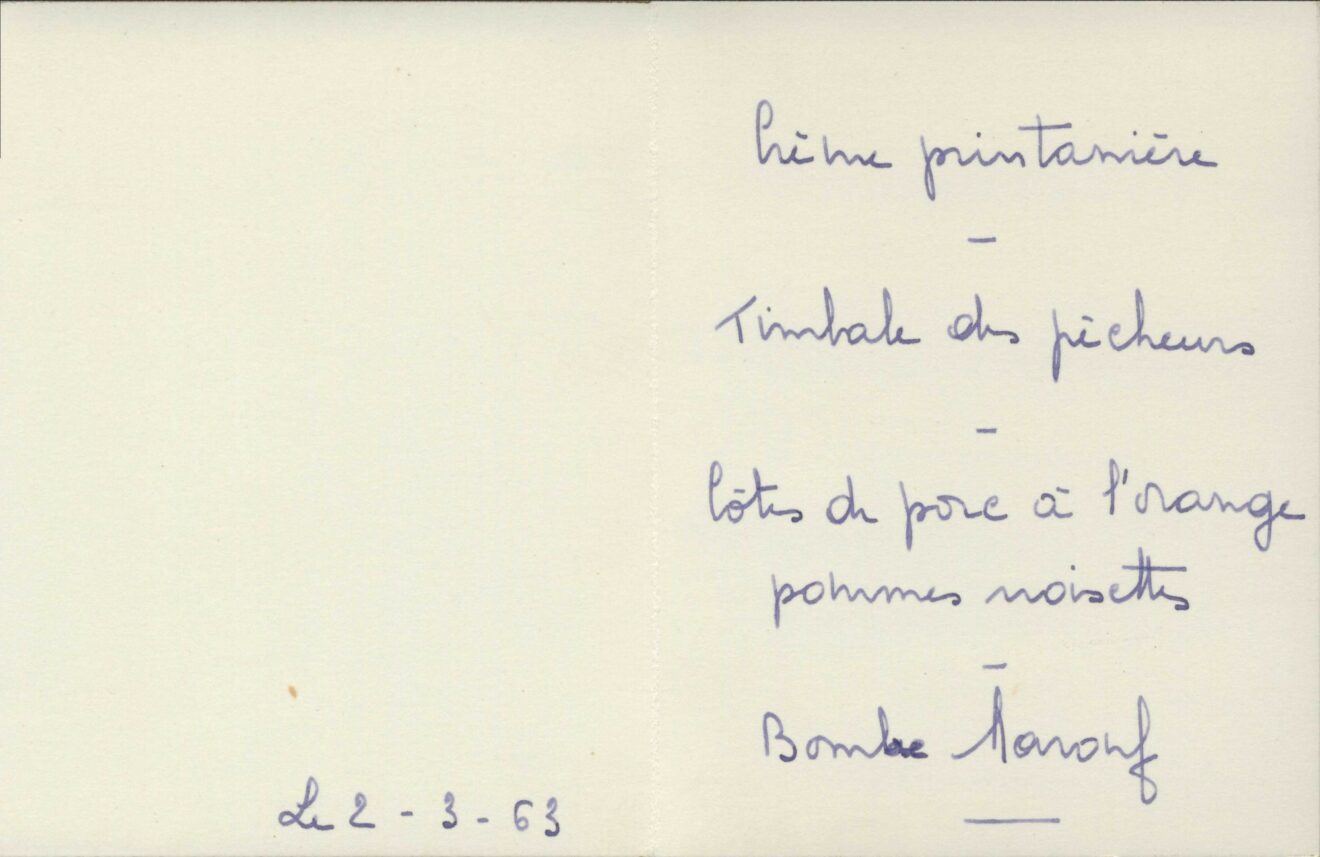 Le 2 - 3 - 63
Crème printanière
-
Timbale des pêcheurs
-
Côtes de porc à l'orange
pommes noisettes
-
Bombe